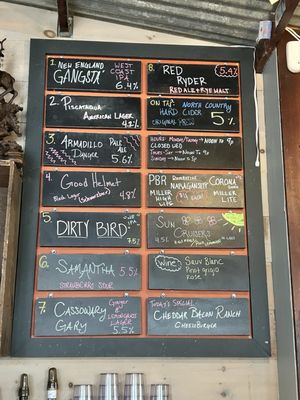 1. NEW ENGLAND
GANGSTA
WEST
COAST
IPA
6.4%
2. PISCATAQUA
AMERICAN LAGER
4.2%
3. ARMADILLO
DANGER
PALE
ALE
5.6%
4. GOOD HELMET
4.8%
5.
DIRTY BIRD
7.5%
6.
SAMANTHA 5.5%
STRAWBERRY SOUR
7. CASSOWARY
GARY
GINGER &
LEMONGRASS
LAGER
5.5%
8. RED
RYDER
5.4%
RED ALE + RYE MALT
ON TAP: NORTH COUNTRY
HARD CIDER
ORIGINAL PRESS
5%
HOURS: MONDAY/TUESDAY
NOON TO 9P
CLOSED WED
THURS-SAT
NOON TO 9P
SUNDAY
NOON TO 8P
PBR
DOMESTICS
NARRAGANSETT
CORONA
MILLER
HIGH
LIFE
MILLER
LITE
SUN
CRUISERS
4.5%
WINE
SAUV BLANC
PINOT GRIGIO
ROSE
TODAY'S SPECIAL
CHEDDAR BACON RANCH
CHEESEBURGER